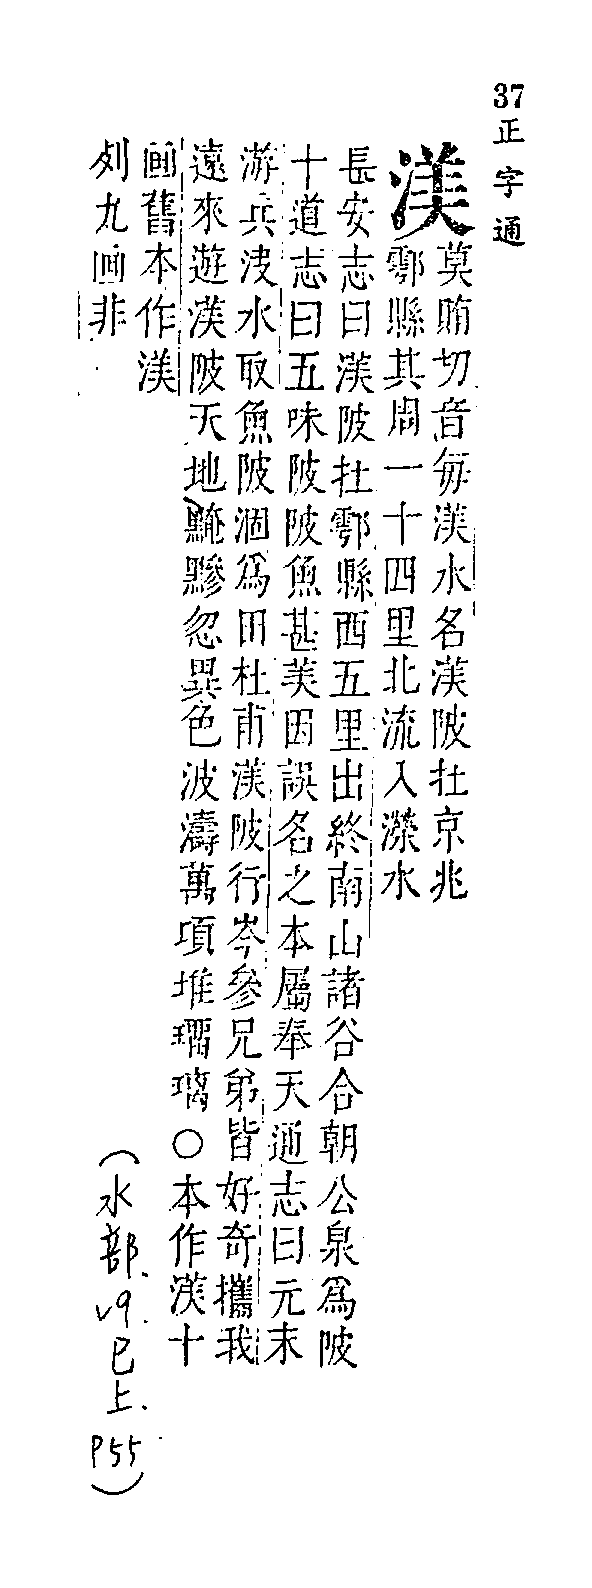 37 正字通
渼
莫賄切音每渼水名渼陂在京兆
鄠縣其周一十四里北流入澇水
長安志曰渼陂在鄠縣西五里出終南山諸谷合朝公泉爲陂
十道志曰五味陂陂魚甚美因誤名之本屬奉天通志曰元末
游兵決水取魚陂涸爲田杜甫渼陂行岑參兄弟皆好奇攜我
遠來遊渼陂天地黤黲忽異色波濤萬頃堆瑠璃○本作渼十
画舊本作渼
列九画非
(水部、v9.巳上.P55)